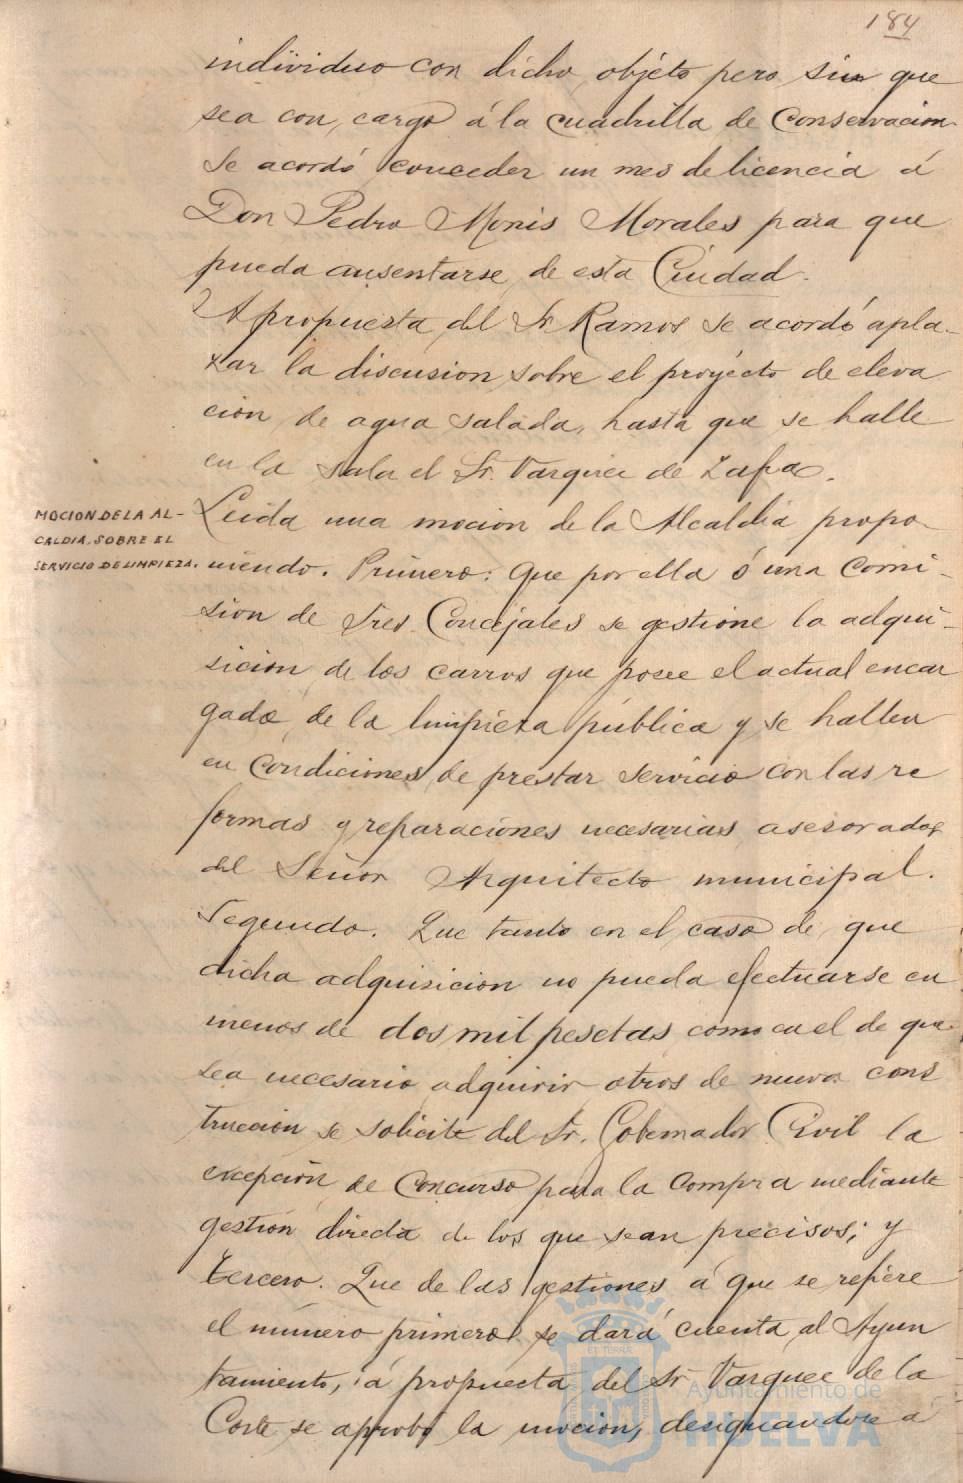 184
individuo con dicho objéto pero sin que
sea con cargo á la cuadrilla de Conservacion.
Se acordó conceder un mes de licencia á
Don Pedro Monis Morales para que
pueda ausentarse de esta Ciudad.
A propuesta del Sr Ramos se acordó apla-
zar la discusion sobre el proyécto de eleva
cion de agua salada, hasta que se halle
en la sala el Sr. Vazquez de Zafra.
MOCION DE LA AL-
CALDIA, SOBRE EL
SERVICIO DE LIMPIEZA.
Leida una mocion de la Alcaldia propo
niendo. Primero: Que por ella ó una Comi-
sion de Tres Concejales se gestione la adqui-
sicion de los carros que posee el actual encar
gado de la limpieza pública y se hallen
en condiciones de prestar servicio con las re
formas y reparaciones necesarias asesorados
del Señor Arquitecto municipal.
Segundo. Que tanto en el caso de que
dicha adquisicion no pueda efectuarse en
menos de dos mil pesetas como en el de que
sea necesario adquirir otros de nueva cons
truccion se solicite del Sr. Gobernador Civil la
excepción de Concurso para la Compra mediante
gestión directa de los que sean precisos; y
tercero. Que de las gestiones á que se refiere
el número primero se dará cuenta al Ayun
tamiento, á propuesta del Sr Vazquez de la
Corte se aprobó la mocion, designandose á
ET TERRÆ
Ayuntamiento de
HUELVA